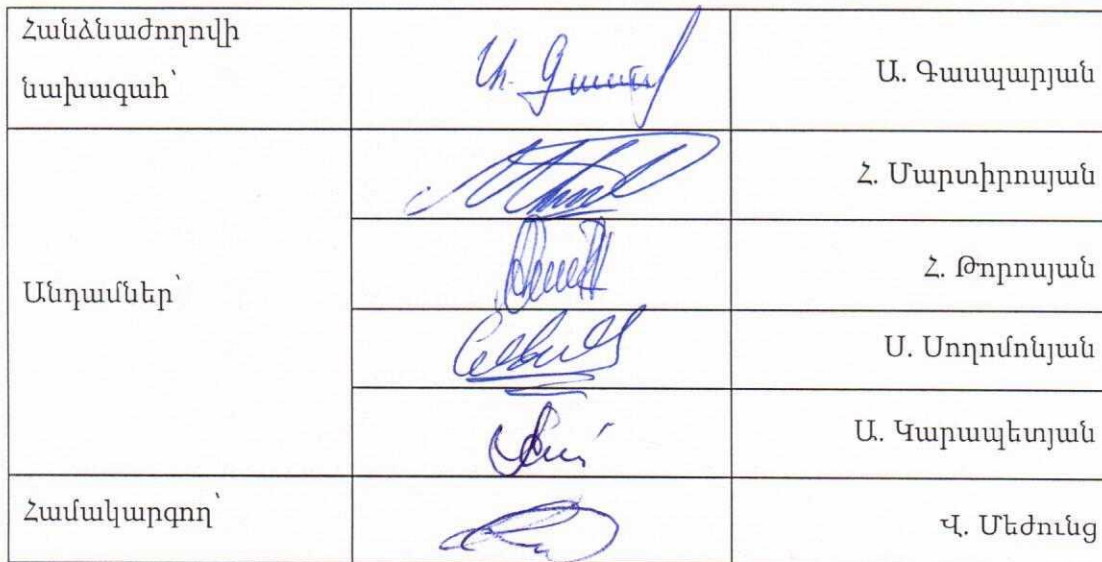 Հանձնաժողովի
նախագահ՝
Ա. Գասպարյան
Հ. Մարտիրոսյան
Անդամներ՝
Հ. Թորոսյան
Ս. Սողոմոնյան
Ա. Կարապետյան
Համակարգող՝
Վ. Մեժունց